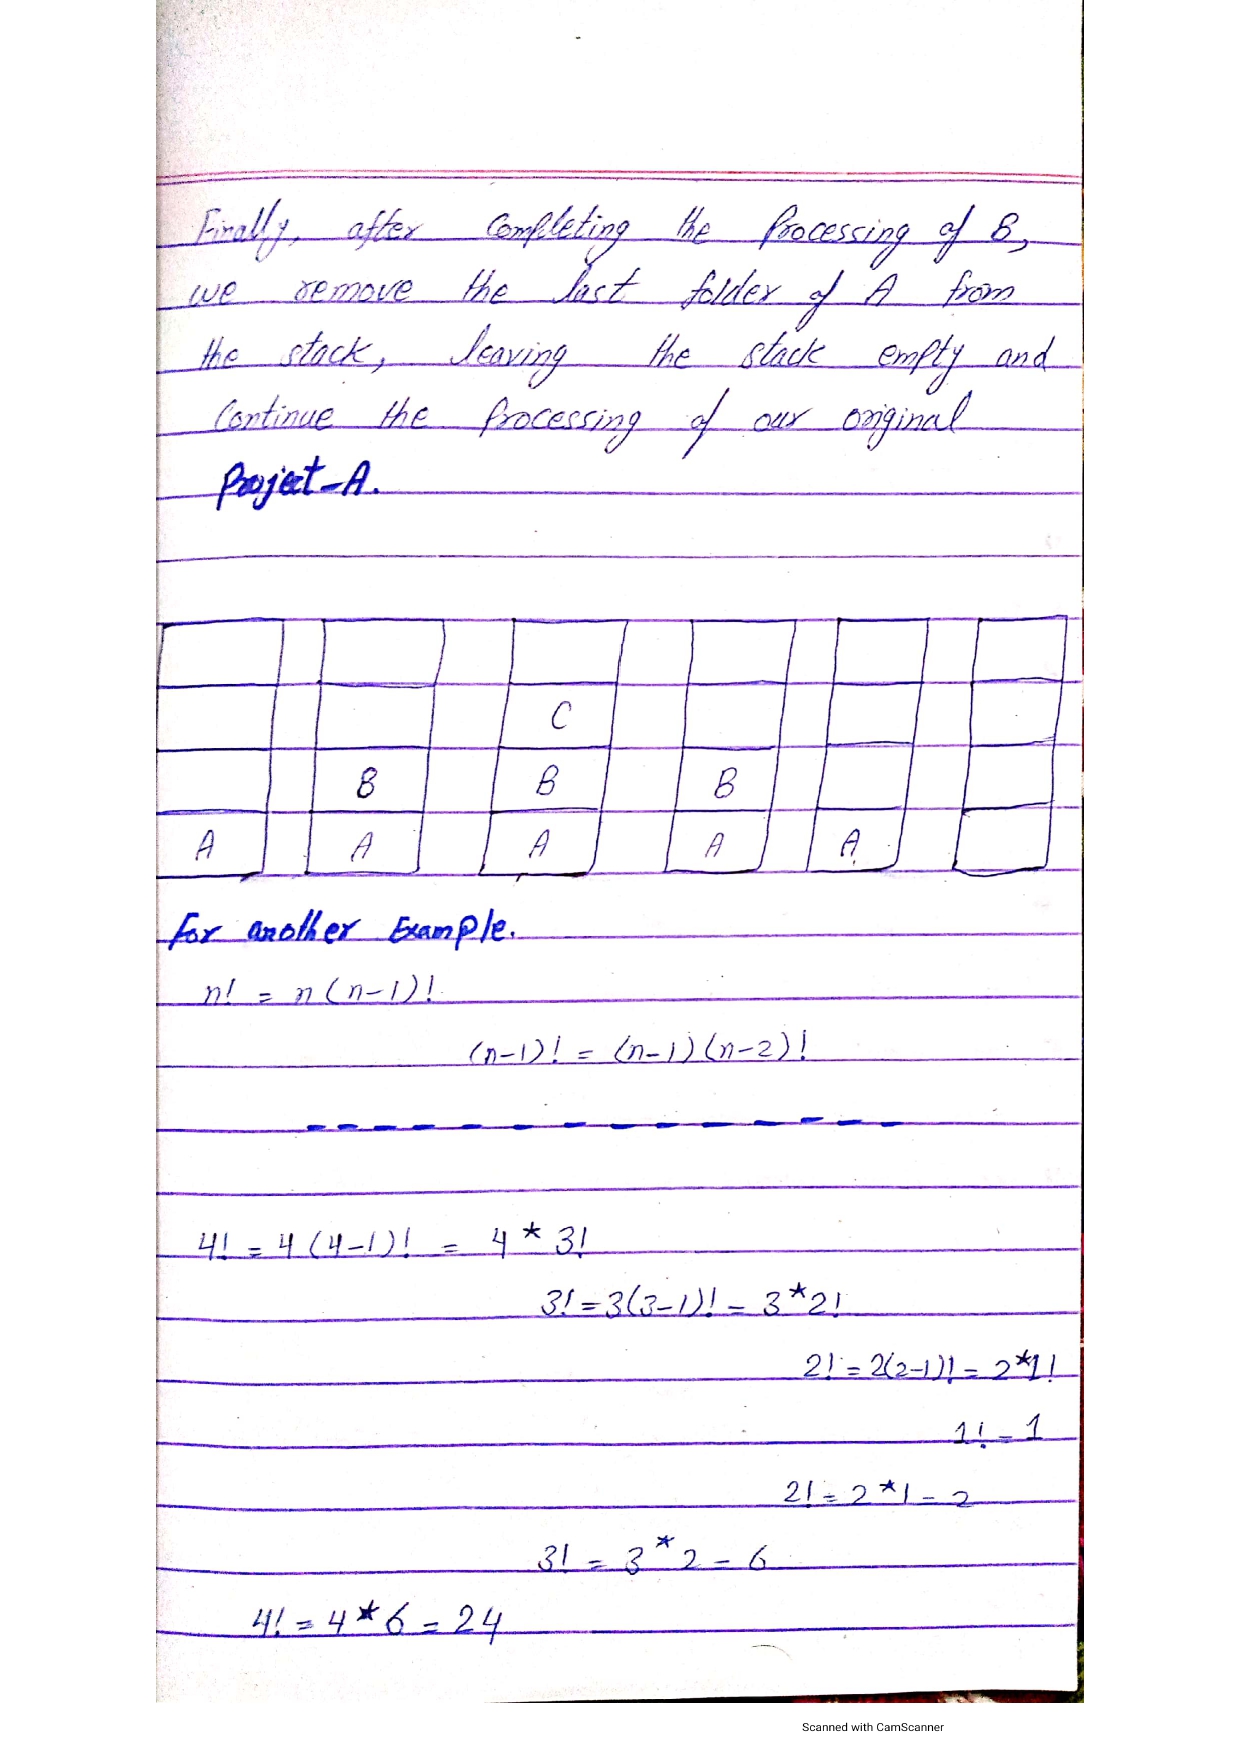 Finally, after Completing the Processing of B,
we remove the last folder of A from
the stack, leaving the stack empty and
Continue the Processing of our original
Project-A.
C
B B B
A A A A A
For another Example.
n! = n(n-1)!
(n-1)! = (n-1)(n-2)!
4! = 4(4-1)! = 4 * 3!
3! = 3(3-1)! = 3*2!
2! = 2(2-1)! = 2*1!
1! = 1
2! = 2*1 = 2
3! = 3*2 = 6
4! = 4*6 = 24
Scanned with CamScanner